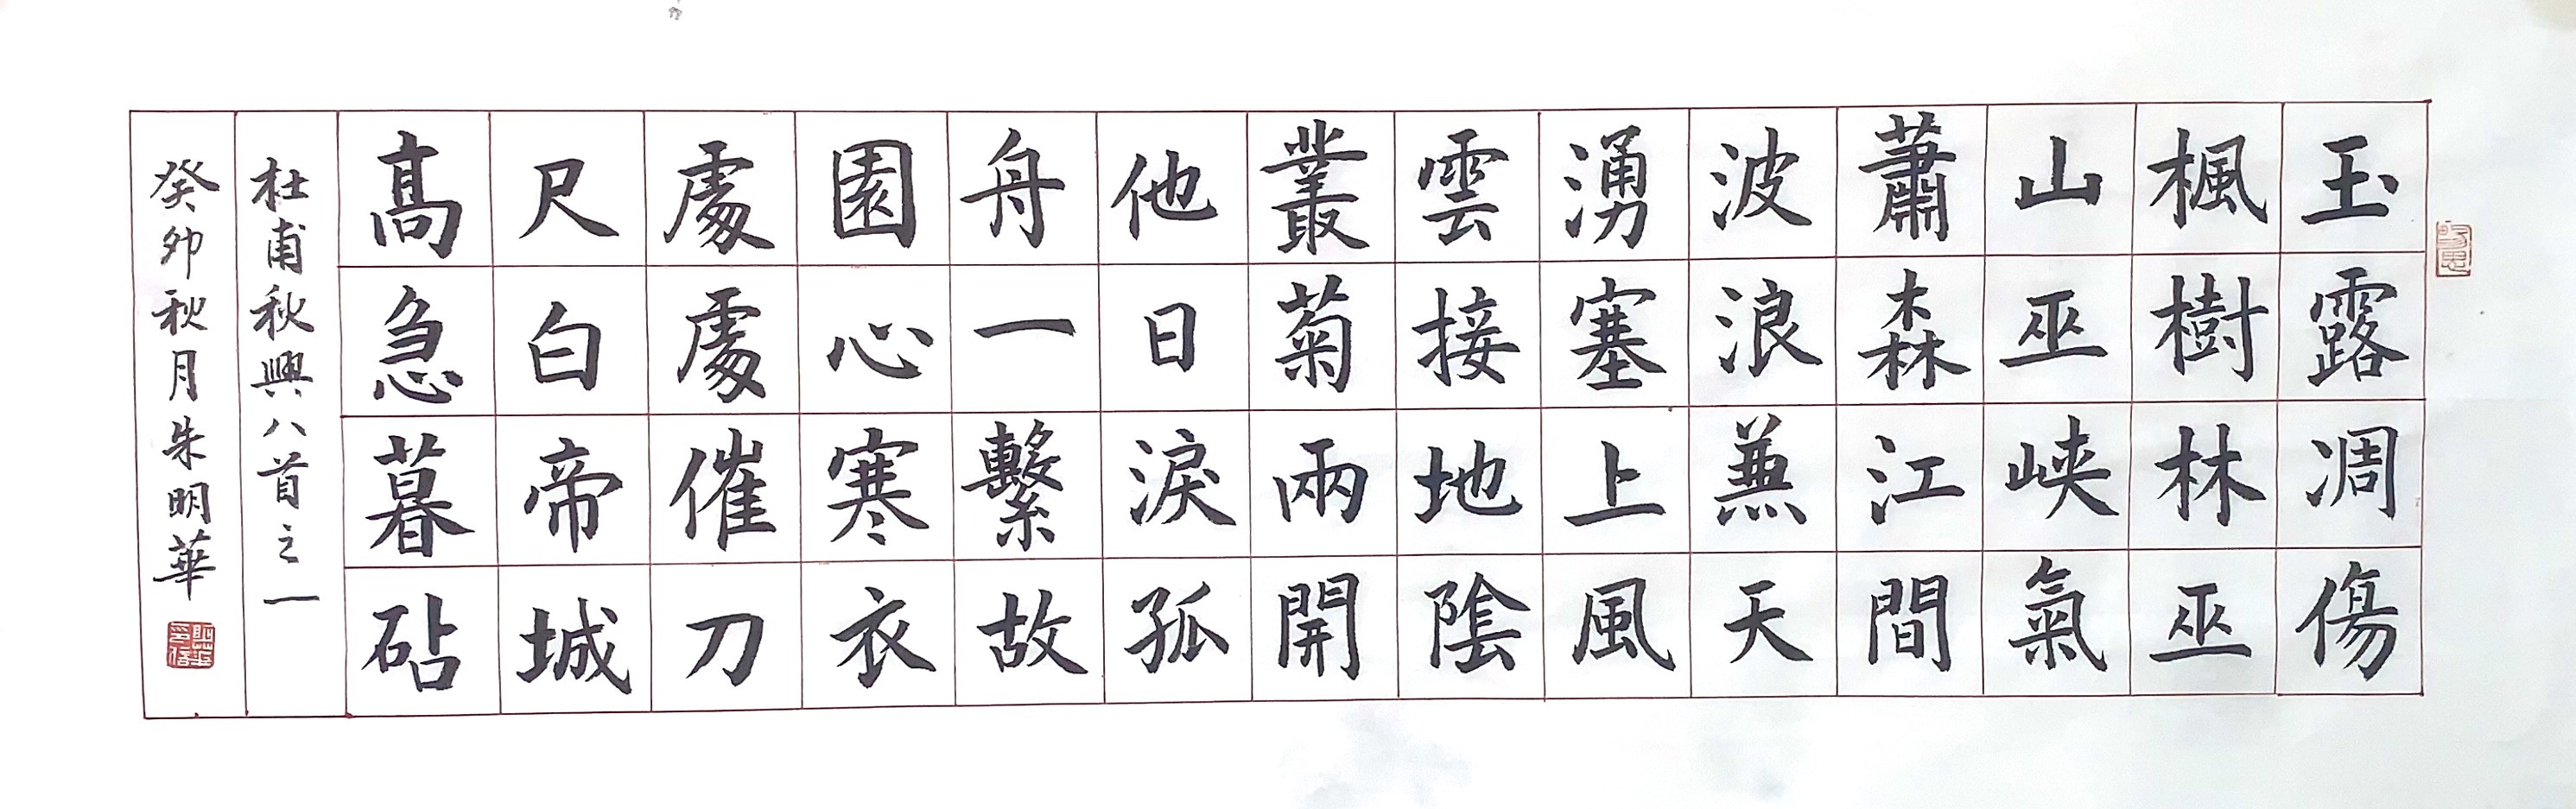 玉露凋傷
楓樹林巫
山巫峡氣
蕭森江間
波浪兼天
湧塞上風
雲接地陰
叢菊兩開
他日淚孤
舟一繫故
園心寒衣
處處催刀
尺白帝城
高急暮砧
杜甫秋興八首之一
癸卯秋月朱明華